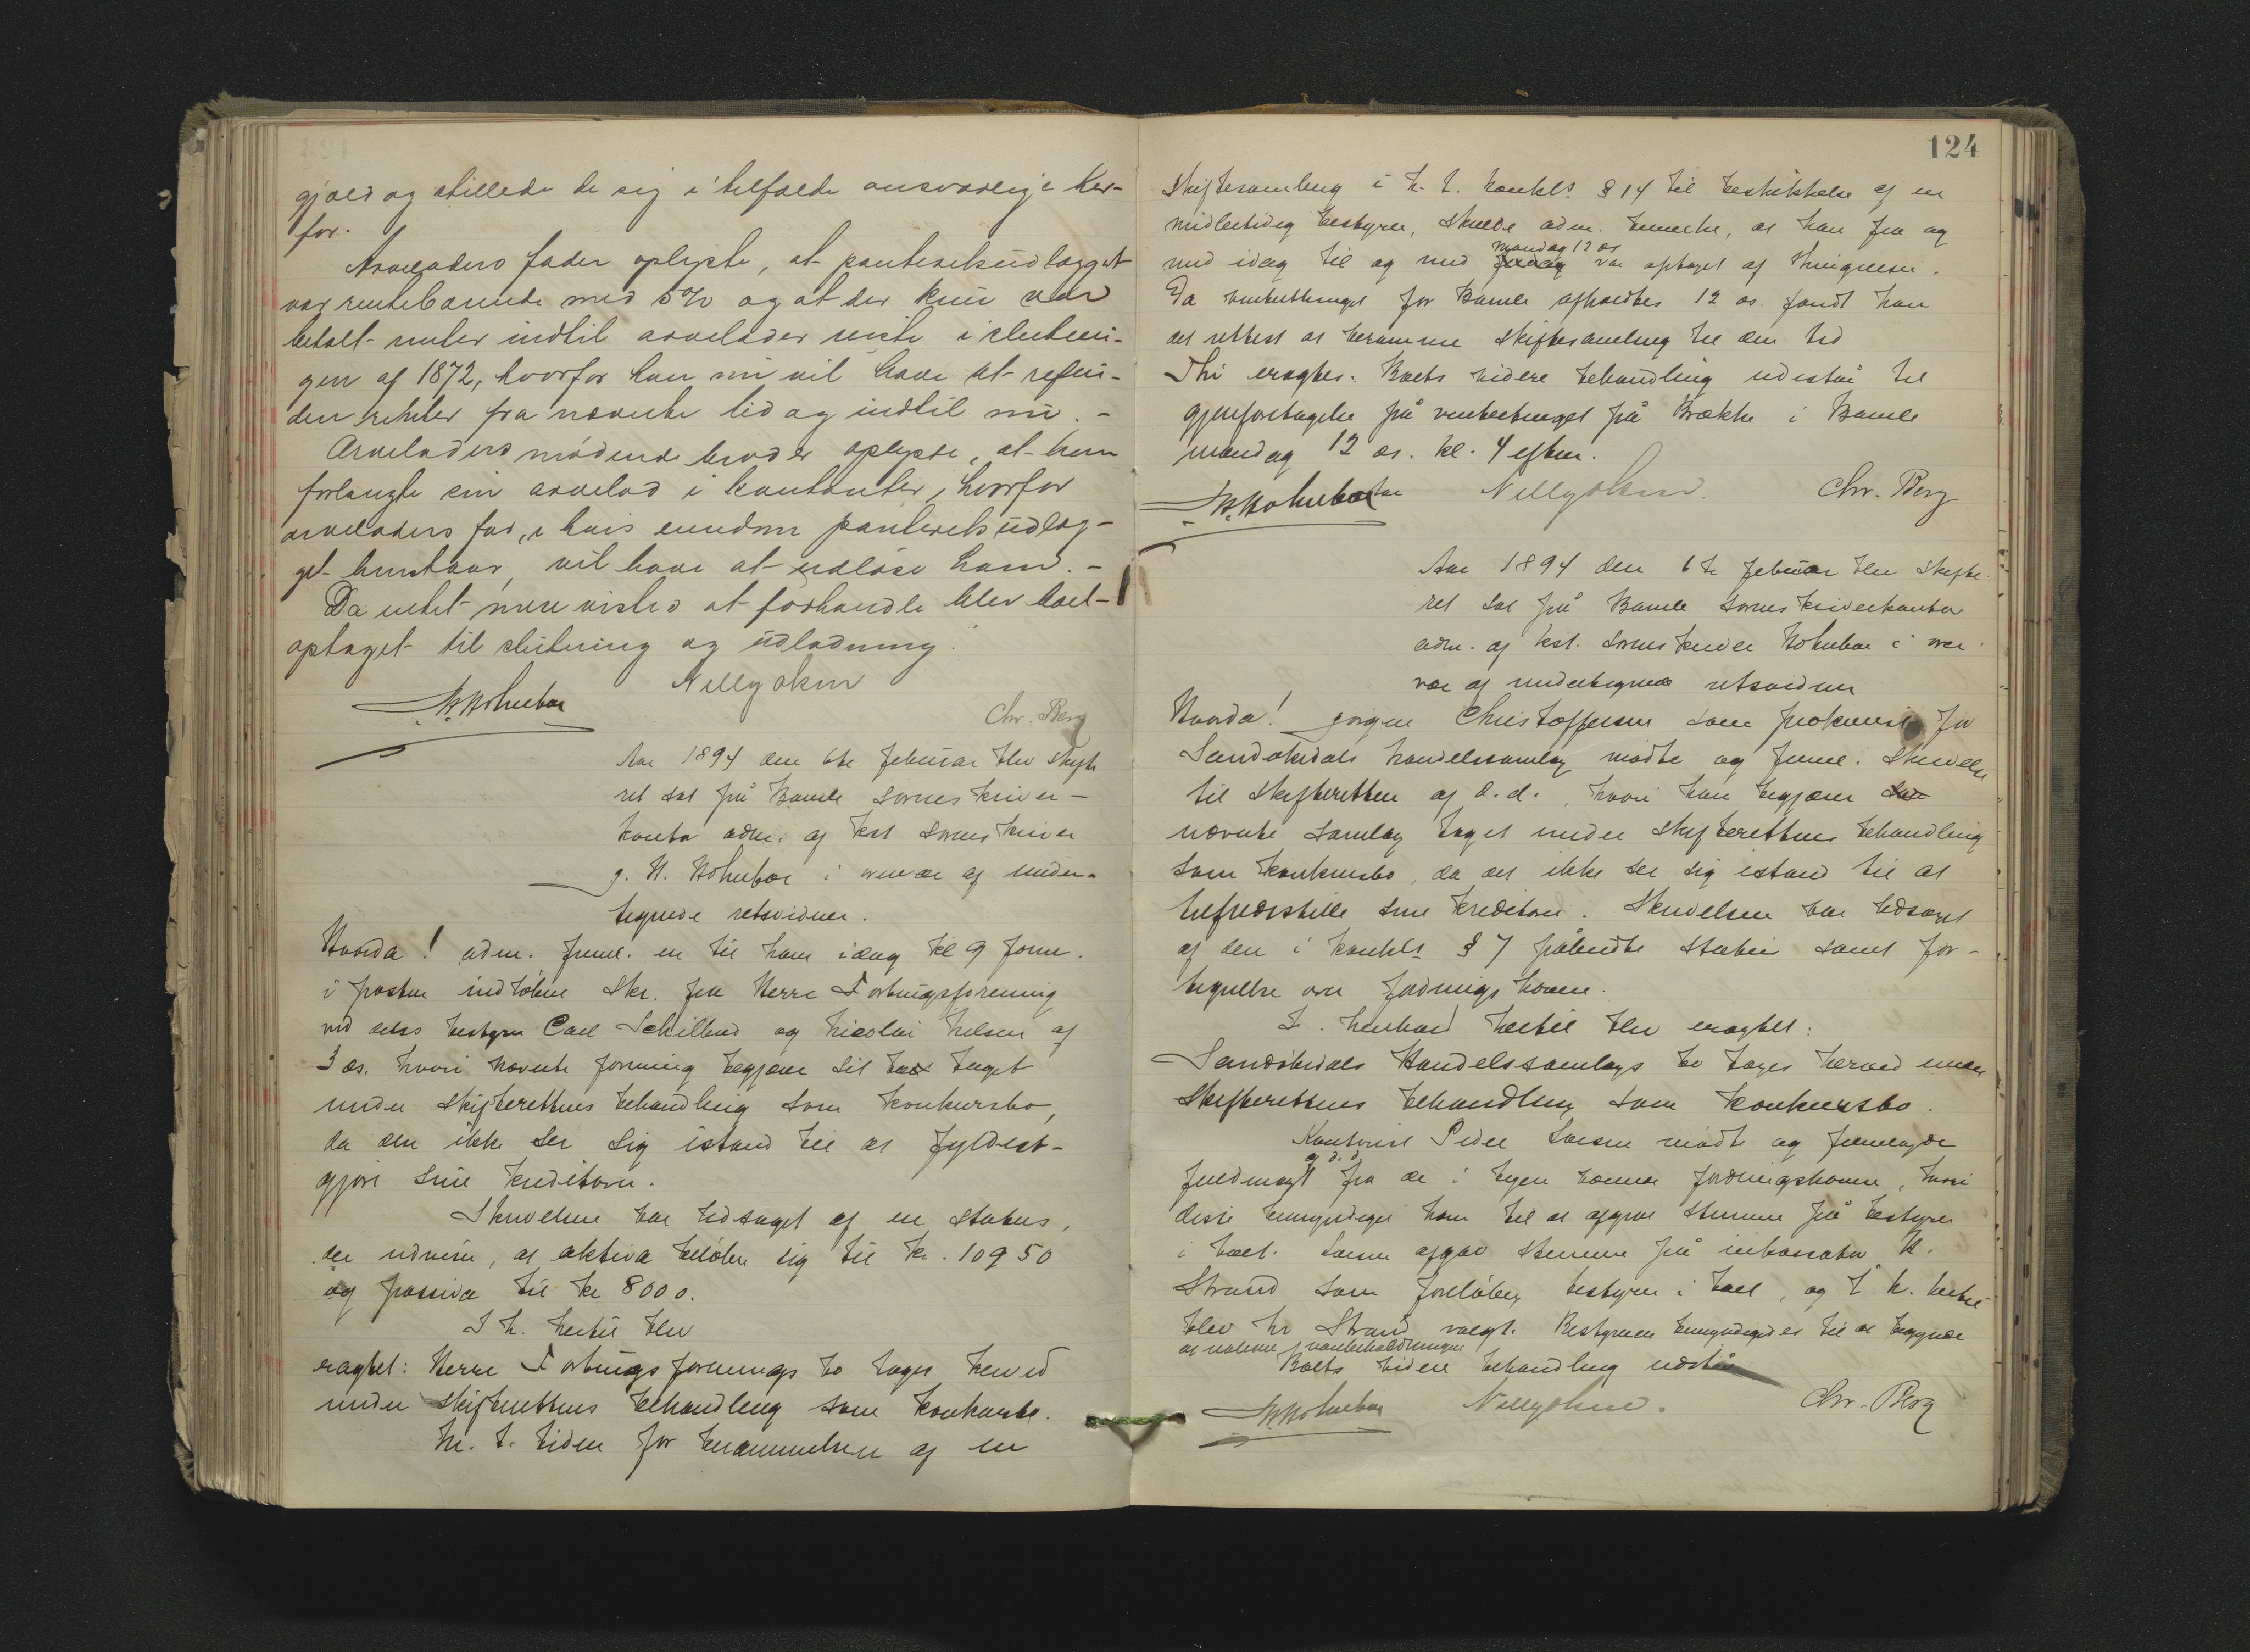 gjæld og stillede de sig i tilfælde ansvarlige her-
for.
Arveladers fader oplyste, at panteretsudlægget
var rentebærende med 5% og at der kun var
betalt renter indtil arvelader reiste i slutnin-
gen af 1872, hvorfor han nu vil have at refun-
dere renter fra nævnte tid og indtil nu. -
Arveladers mødende broder oplyste, at han
forlangte sin arvelod i kontanter, hvorfor
arveladers far, i hvis eiendom panteretsudlæg-
get henstaar, vil have at udløse ham. -
Da intet mere vistes at forhandle blev boet
optaget til slutning og udlodning.
Holmboe
Chr. Berg
Aar 1894 den 6te februar blev skifte
ret sat på Bamle sorenskriver-
kontor adm. af kst sorenskriver
J. H. Holmboe i overvær af under-
tegnede retsvidner.
Hvorda! adm. freml. en til ham idag kl 9 form.
i posten indløben skr. fra Herre Forbrugsforening
ved dets bestyrer Carl Schilbred og Nicolai Nielsen af
3 ds. hvori nævnte forening begjærer sit bo taget
under skifterettens behandling som konkursbo,
da den ikke ser sig istand til at fyldest-
gjøre sine kreditorer.
Skrivelsen var ledsaget af en status,
der udviser, at aktiva beløber sig til kr. 10950
og passiva til kr 8000.
I h. hertil blev
eragtet: Herre Forbrugsforenings bo tages herved
under skifterettens behandling som konkursbo.
M. h. t. tiden for berammelsen af en
124
skiftesamling i h. t. konkls. § 14 til beskikkelse af en
midlertidig bestyrer, skulde adm. bemerke, at han fra og
mandag 12 ds
med idag til og med fredag var optaget af thingreise.
Da vinterthinget for Bamle afholdtes 12 ds. fandt han
det rettest at beramme skiftesamling til den tid
Thi eragtes: Boets videre behandling udestår til
gjenforetagelse på vinterthinget på Brække i Bamle
mandag 12 ds. kl. 4 efterm.
Holmboe
Chr. Berg
Aar 1894 den 6te februar blev skifte-
ret sat på Bamle sorenskriverkontor
adm. af kst. sorenskriver Holmboe i over-
vær af undertegnede retsvidner
Hvorda! Jørgen Christoffersen som prokurist for
Sandøkedals handelssamlag mødte og freml. skrivelse
til skifteretten af d.d., hvori han begjærer
nævnte samlag taget under skifterettens behandling
som konkursbo, da det ikke ser sig istand til at
tilfredsstille sine kreditorer. Skrivelsen var ledsaget
af den i konkls § 7 påbudte status samt for-
tegnelse over fordringshavere.
I henhold hertil blev eragtet:
Sandøkedals Handelssamlags bo tages herved under
skifterettens behandling som konkursbo.
Kontorist Peder Larsen mødte og fremlagde
af d.d.
fuldmagt fra de i byen boende fordringshavere, hvori
disse bemyndiger ham til at afgive stemme på bestyrer
i boet. Larsen afgav stemme på inkassator K.
Strand som foreløbig bestyrer i boet, og i h. hertil
blev hr Strand valgt. Bestyreren bemyndigedes til at begynde
at realisere varebeholdningen
Boets videre behandling udstår
Holmboe
Chr. Berg